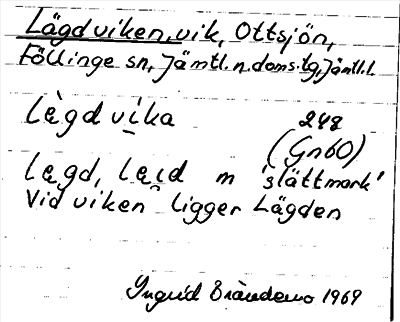 Lägdviken, vik, Ottsjön,
Föllinge sn, Jämtl. n. doms.tg, Jämtl. l.
lègdvika 248
(Gn60)
lęgd, lęid m 'slåttmark'
Vid viken ligger Lägden
Ingrid
1969